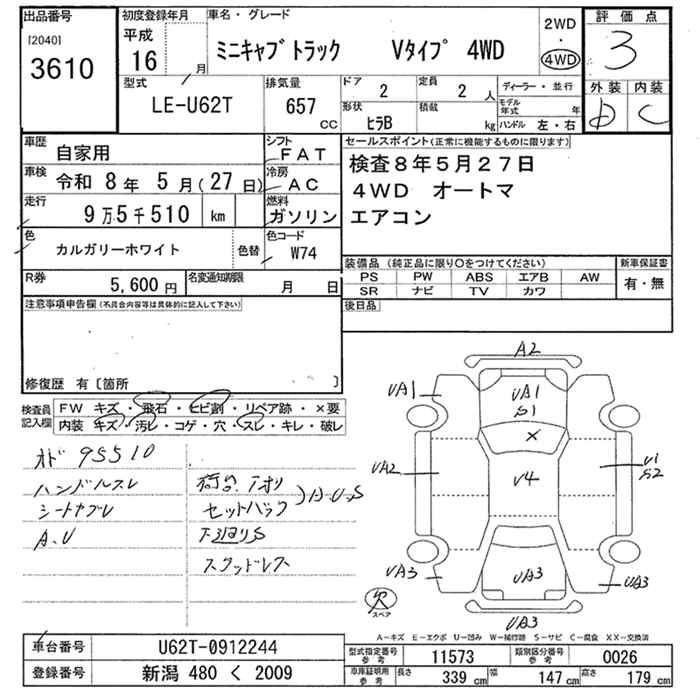 出品番号
[2040]
3610
初度登録年月
平成
16
月
車名・グレード
ミニキャブトラック Vタイプ 4WD
2WD
・
4WD
評価点
3
外装 内装
D C
型式
LE-U62T
排気量
657
CC
ドア
2
定員
2 人
形状
ヒラB
積載
kg
ディーラー・並行
モデル年式 年
ハンドル 左・右
車歴
自家用
シフト
FAT
車検
令和 8年 5月(27日)
冷房
AC
走行
9万5千510 km
燃料
ガソリン
色
カルガリーホワイト
色替
色コード
W74
R券
5,600円
名変通知期限
月 日
セールスポイント(正常に機能するものに限ります)
検査8年5月27日
4WD オートマ
エアコン
装備品(純正品に限り○をつけてください)
PS PW ABS エアB AW
SR ナビ TV カワ
新車保証書
有・無
後日品
注意事項申告欄(不具合内容等は具体的に記入して下さい)
修復歴 有〔箇所 〕
検査員
記入欄
FW キズ・飛石・ヒビ割・リペア跡・×要
内装 キズ・汚レ・コゲ・穴・スレ・キレ・破レ
オド 95510
ハンドルスレ
シートヤブレ
A.U
荷台.アオリ
セットバック
)A.U.S
下廻りS
スタッドレス
A2
UA1
UA1
S1
×
UA2
U4
U1
S2
UA3
UA3
UA3
UA3
欠
スペア
A―キズ E―エクボ U―凹み W―補修跡 S―サビ C―腐食 XX―交換済
車台番号
U62T-0912244
登録番号
新潟 480 く 2009
型式指定番号
参考
11573
類別区分番号
参考
0026
車庫証明用
参考
長さ 339 cm
幅 147 cm
高さ 179 cm